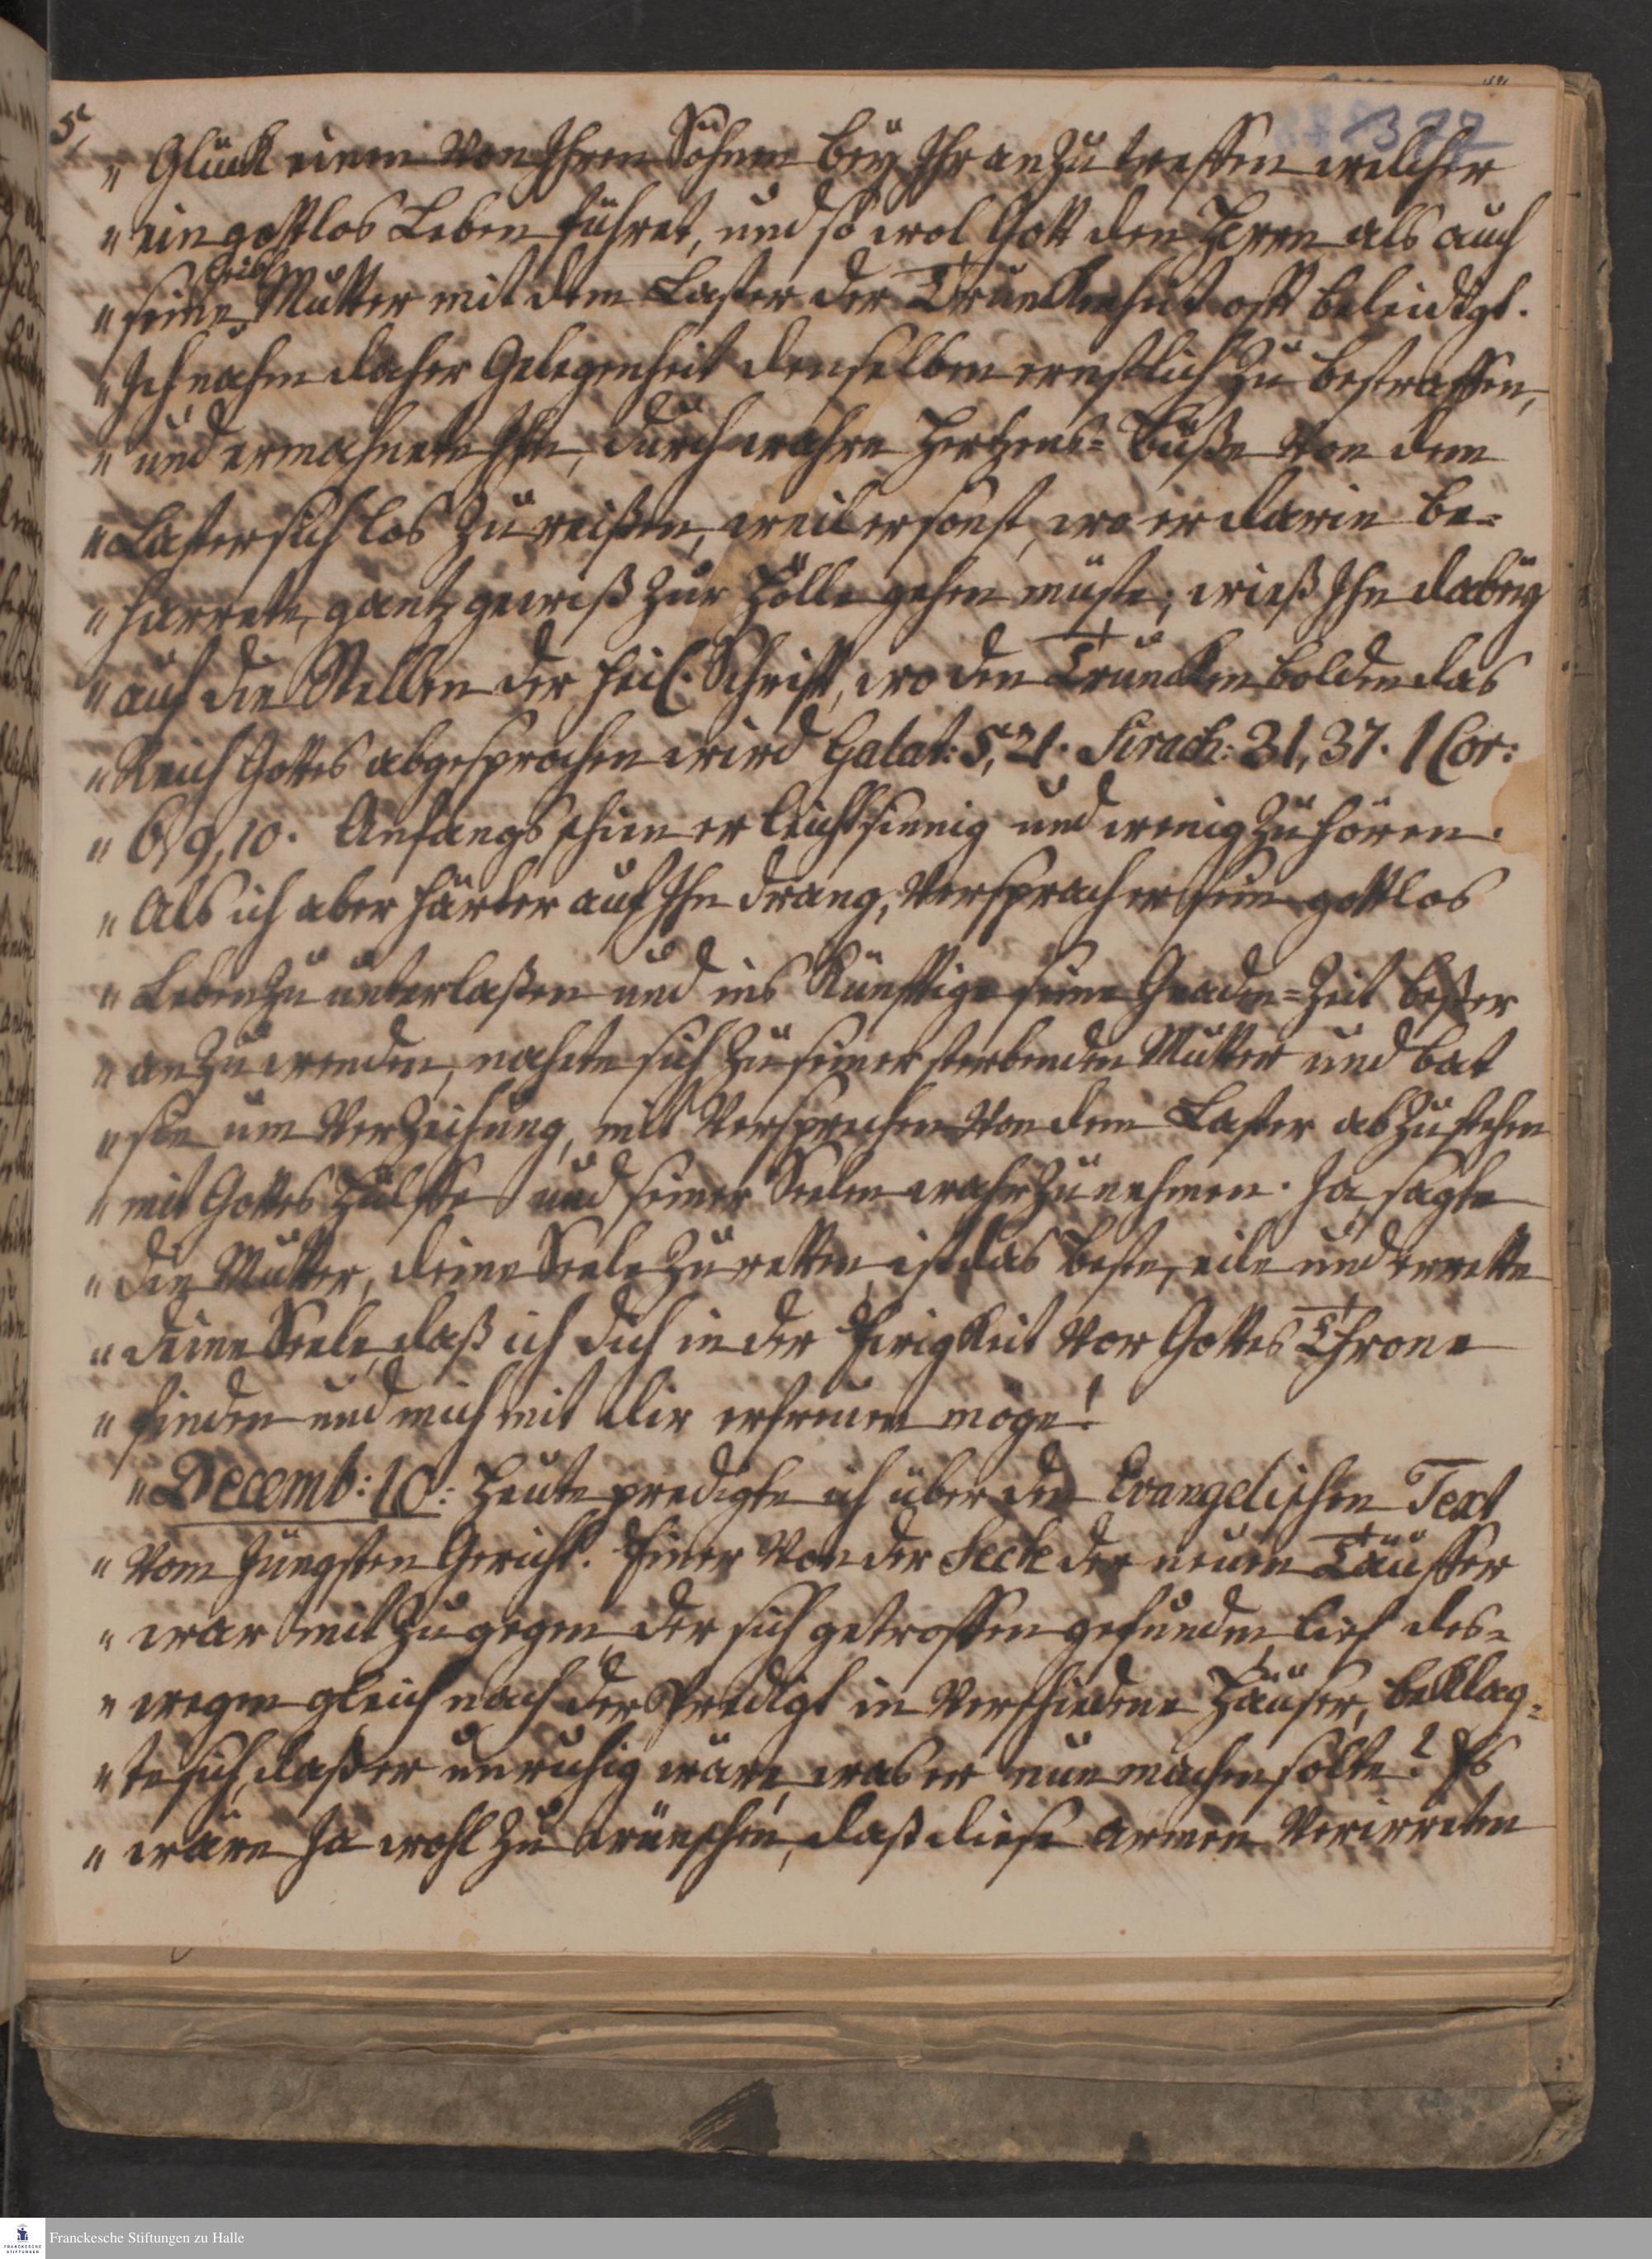 5.
1377
„ Glück einen von Ihren Söhnen bey Ihr anzutreffen welcher
„ ein gottlos Leben führet, und so wol Gott den Herrn als auch
leibl.
„ seine Mutter mit dem Laster der Trunckenheit offt beleidigt.
„ Ich nahm daher Gelegenheit denselben ernstlich zu bestraffen,
„ und ermahnete Ihn, durch wahre Hertzens= Buße von dem
„ Laster sich los zu reißen, weil er sonst, wo er darin be=
„ harrete, gantz gewiß zur Hölle gehen müste; wieß Ihn dabey
„ auf die Stellen der heil. Schrifft, wo den Trunckenbolden das
„ Reich Gottes abgesprochen wird Galat: 5, 21. Sirach: 31, 37. 1 Cor:
„ 6, 9, 10. Anfangs schien er leichtsinnig und wenig zu hören.
„ Als ich aber härter auf Ihn drang, versprach er sein gottlos
„ Leben zu unterlaßen und ins Künfftige seine Gnaden=Zeit beßer
„ anzuwenden, nahete sich zu seiner sterbenden Mutter und bat
„ sie um Verzeihung, mit Versprechen von dem Laster abzustehen
„ mit Gottes Hülffe und seiner Seelen wahrzunehmen. Ja, sagte
„ die Mutter, deine Seele zu retten, ist das beste, eile und errette
„ deine Seele, daß ich dich in der Ewigkeit vor Gottes Throne
„ finden und mich mit dir erfreuen möge!
„ Decemb: 10: Heute predigte ich über den Evangelischen Text
„ vom Jüngsten Gericht. Einer von der Secte der neuen Täuffer
„ war mit zugegen, der sich getroffen gefunden, lief des=
„ wegen gleich nach der Predigt in verschiedene Häuser, beklag=
„ te sich, daß er unruhig wäre, was er nun machen solte? Es
„ wäre ja wohl zu wünschen, daß diese armen Verirreten
Franckesche Stiftungen zu Halle